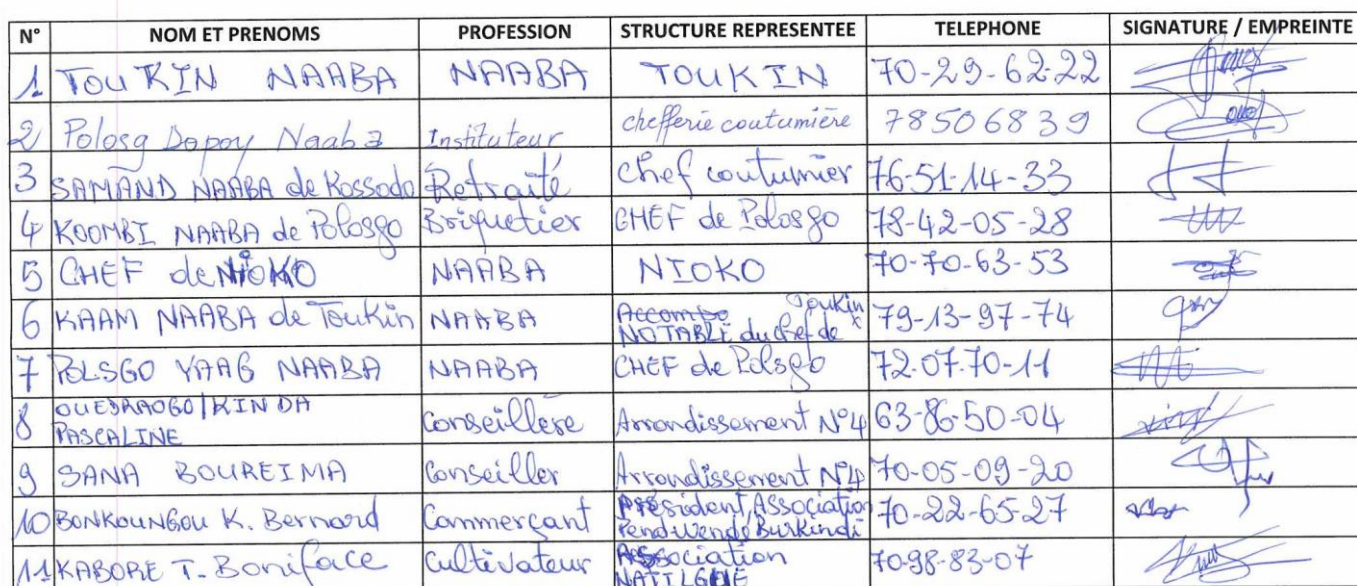 N° NOM ET PRENOMS PROFESSION STRUCTURE REPRESENTEE TELEPHONE SIGNATURE / EMPREINTE
1 TOUKIN NAABA NAABA TOUKIN 70-29-62-22
2 Polosg Dapoy Naaba Instituteur chefferie coutumière 78506839
3 SAMAND NAABA de Kossodo Retraité Chef coutumier 76-51-14-33
4 KOOMBI NAABA de Polosgo Briquetier CHEF de Polosgo 78-42-05-28
5 CHEF de NIOKO NAABA NIOKO 70-70-63-53
6 KAAM NAABA de Toukin NAABA NOTABLE du chef de Toukin 79-13-97-74
7 POLSGO YAAG NAABA NAABA CHEF de Polsgo 72.07.70-11
8 OUEDRAOGO/KINDA PASCALINE Conseillère Arrondissement N°4 63-86-50-04
9 SANA BOUREIMA Conseiller Arrondissement N°4 70-05-09-20
10 BONKOUNGOU K. Bernard Commerçant Président Association Pendwendé Burkindi 70-22-65-27
11 KABORE T. Boniface Cultivateur Association 70-98-83-07